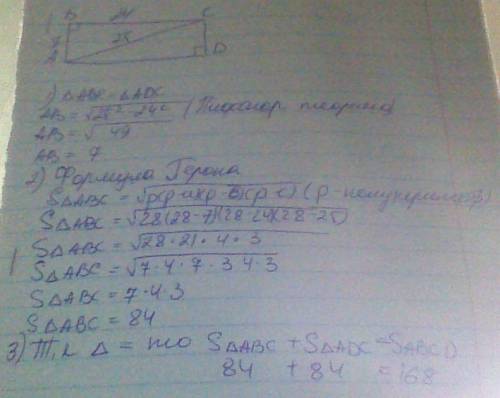 B 24 C
25
A D
1) ΔABC = ΔADC
AB = √25² - 24² (Пифагор. теорема)
AB = √49
AB = 7
2) Формула Герона
SΔABC = √p(p-a)(p-b)(p-c) (p - полупериметр)
SΔABC = √28(28-7)(28-24)(28-25)
SΔABC = √28·21·4·3
SΔABC = √7·4·7·3·4·3
SΔABC = 7·4·3
SΔABC = 84
3) Т, к Δ = то SΔABC + SΔADC = SABCD
84 + 84 = 168